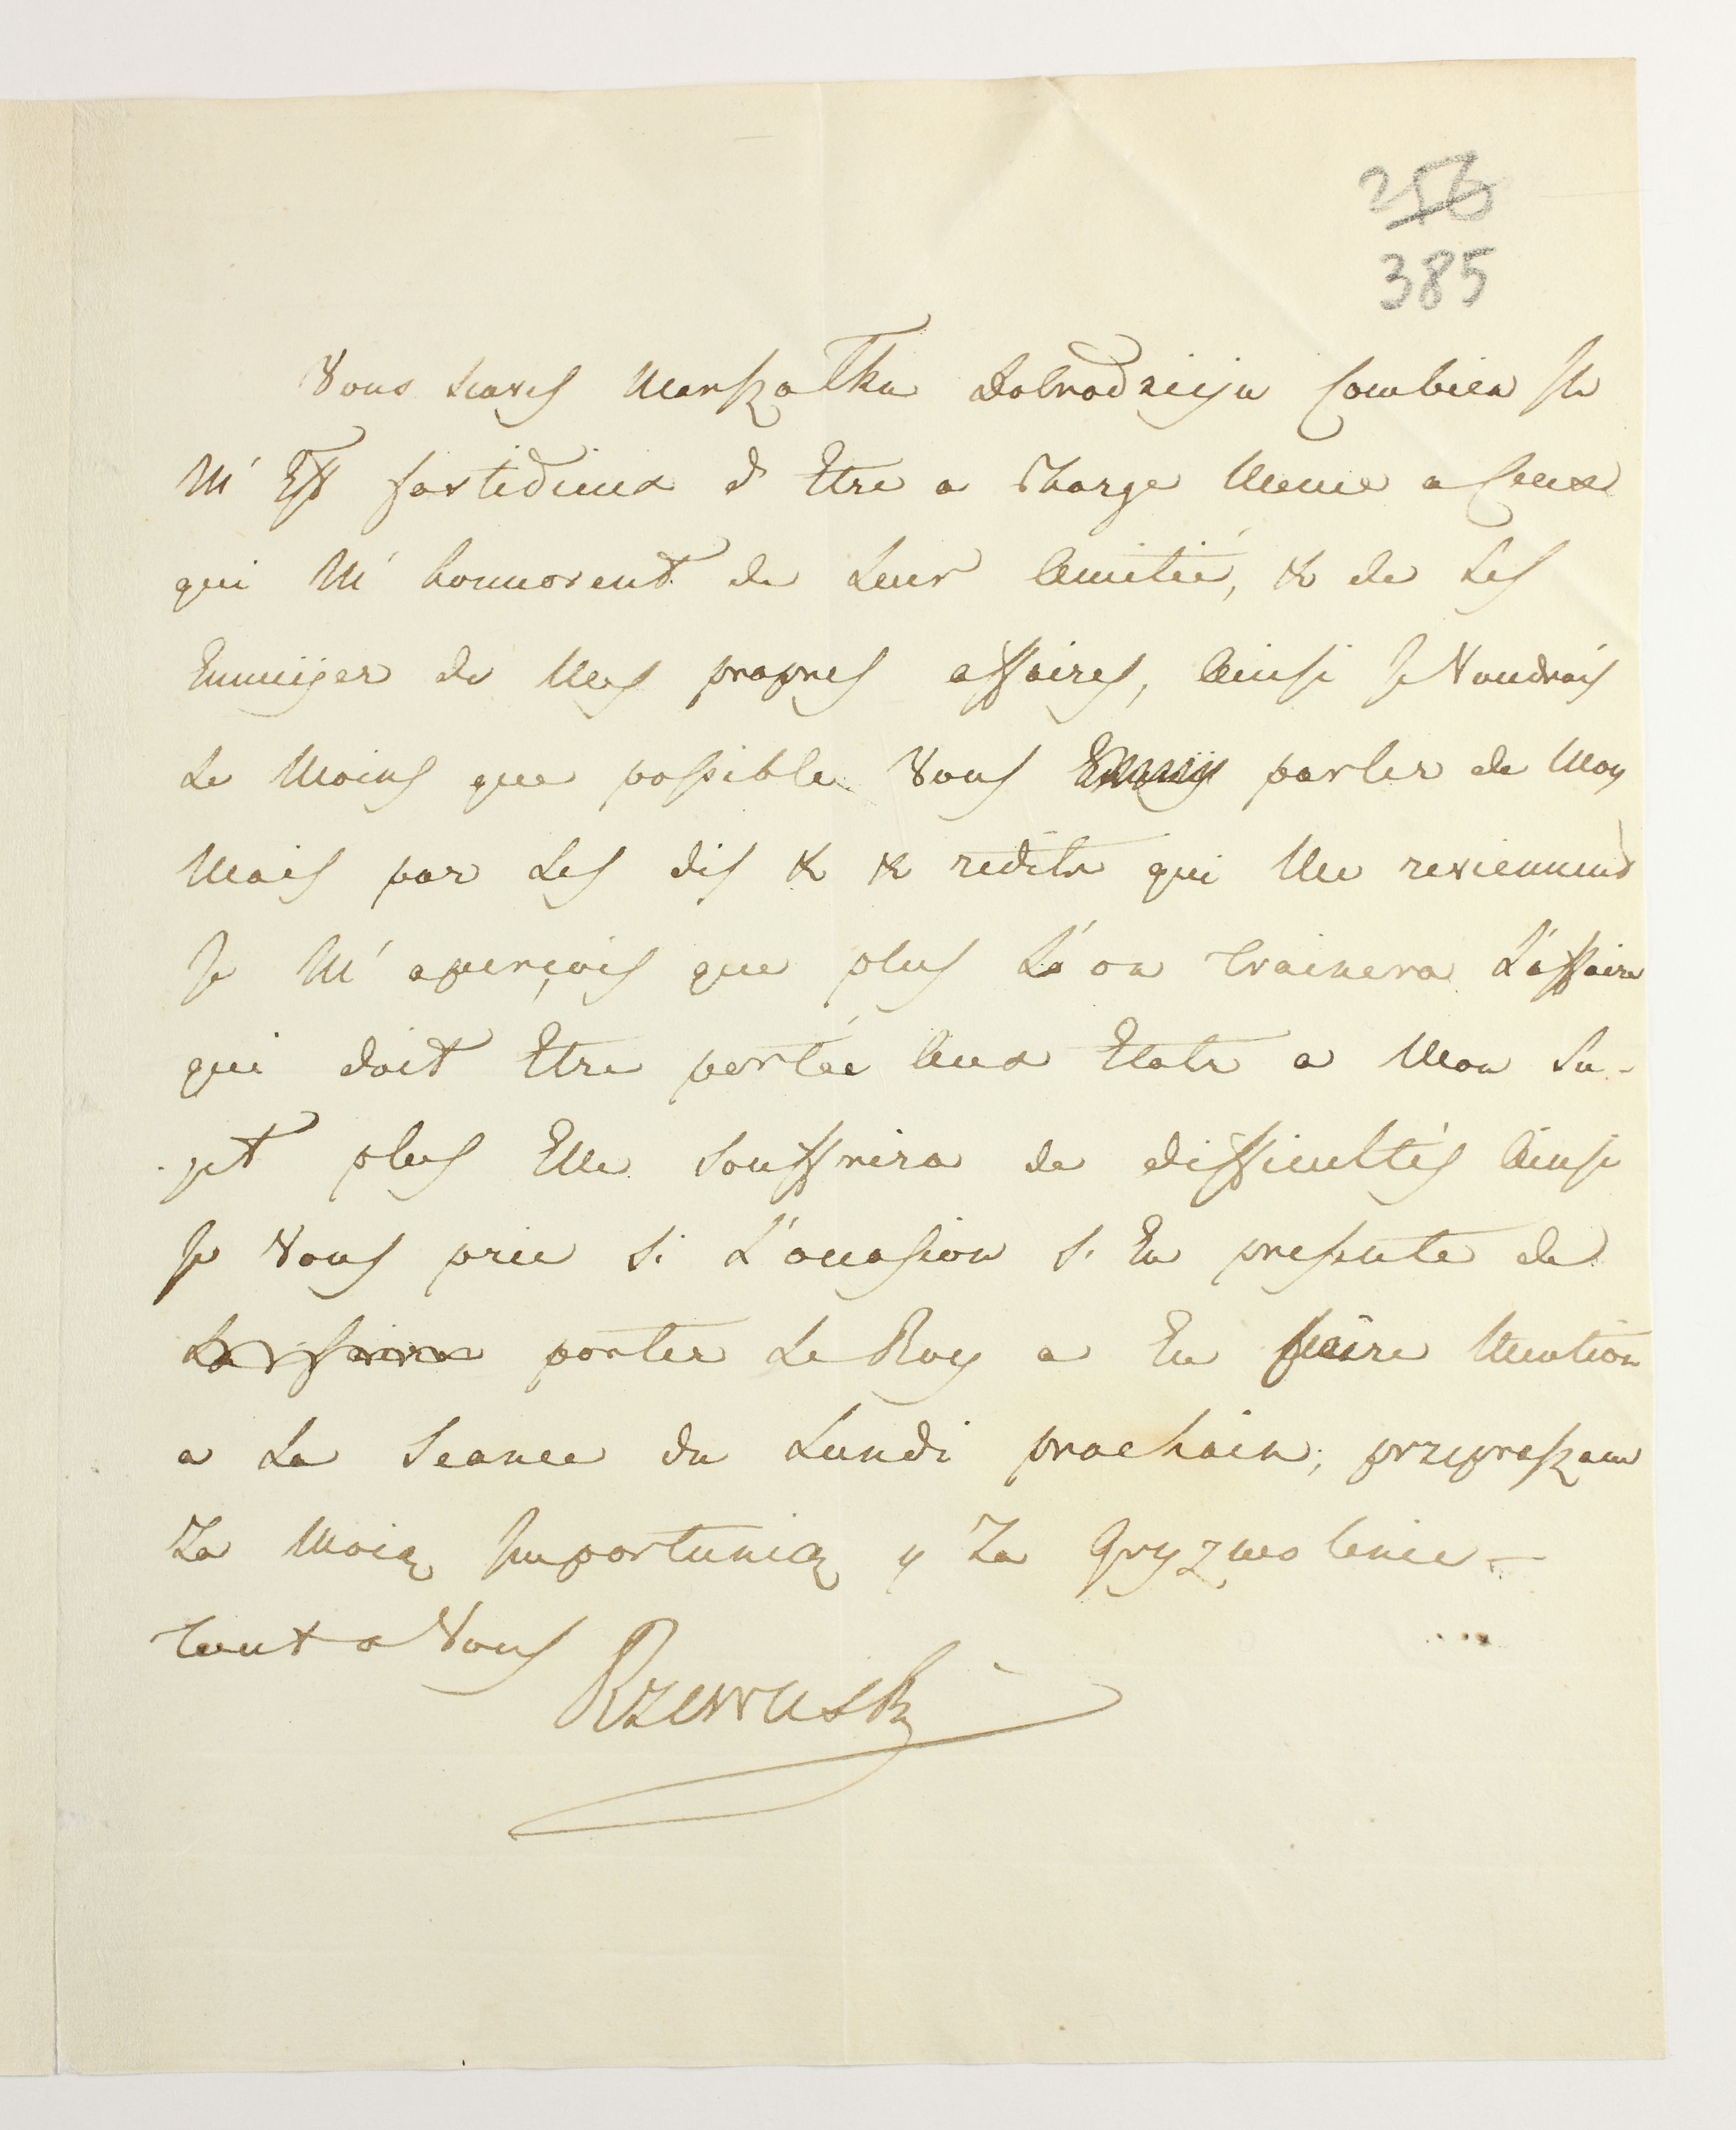 256
385
Vous scavés Marszałku Dobrodzieju Combien Il
M' Est fastidieux d' Etre a Charge Meme a Ceux
qui M' honnorent de Leur Amitié, & de Les
Ennuijer de Mes propres affaires, Ainsi Je Voudrois
Le Moins que possible Vous parler de Moy
Mais par Les dis & & redits qui Me reviennent
Je M' aperçois que plus L'on trainera L'affaire
qui doit Etre portée Aux Etats a Mon Su-
-jet plus Elle Souffrira de difficultés Ainsi
Je Vous prie Si L'occasion S. En presente de
porter Le Roy a En faire Mention
a La Seance du Lundi prochain; przepraszam
Za Moią Importunią y Za Gryzmolenie —
tout a Vous
Rzewuski